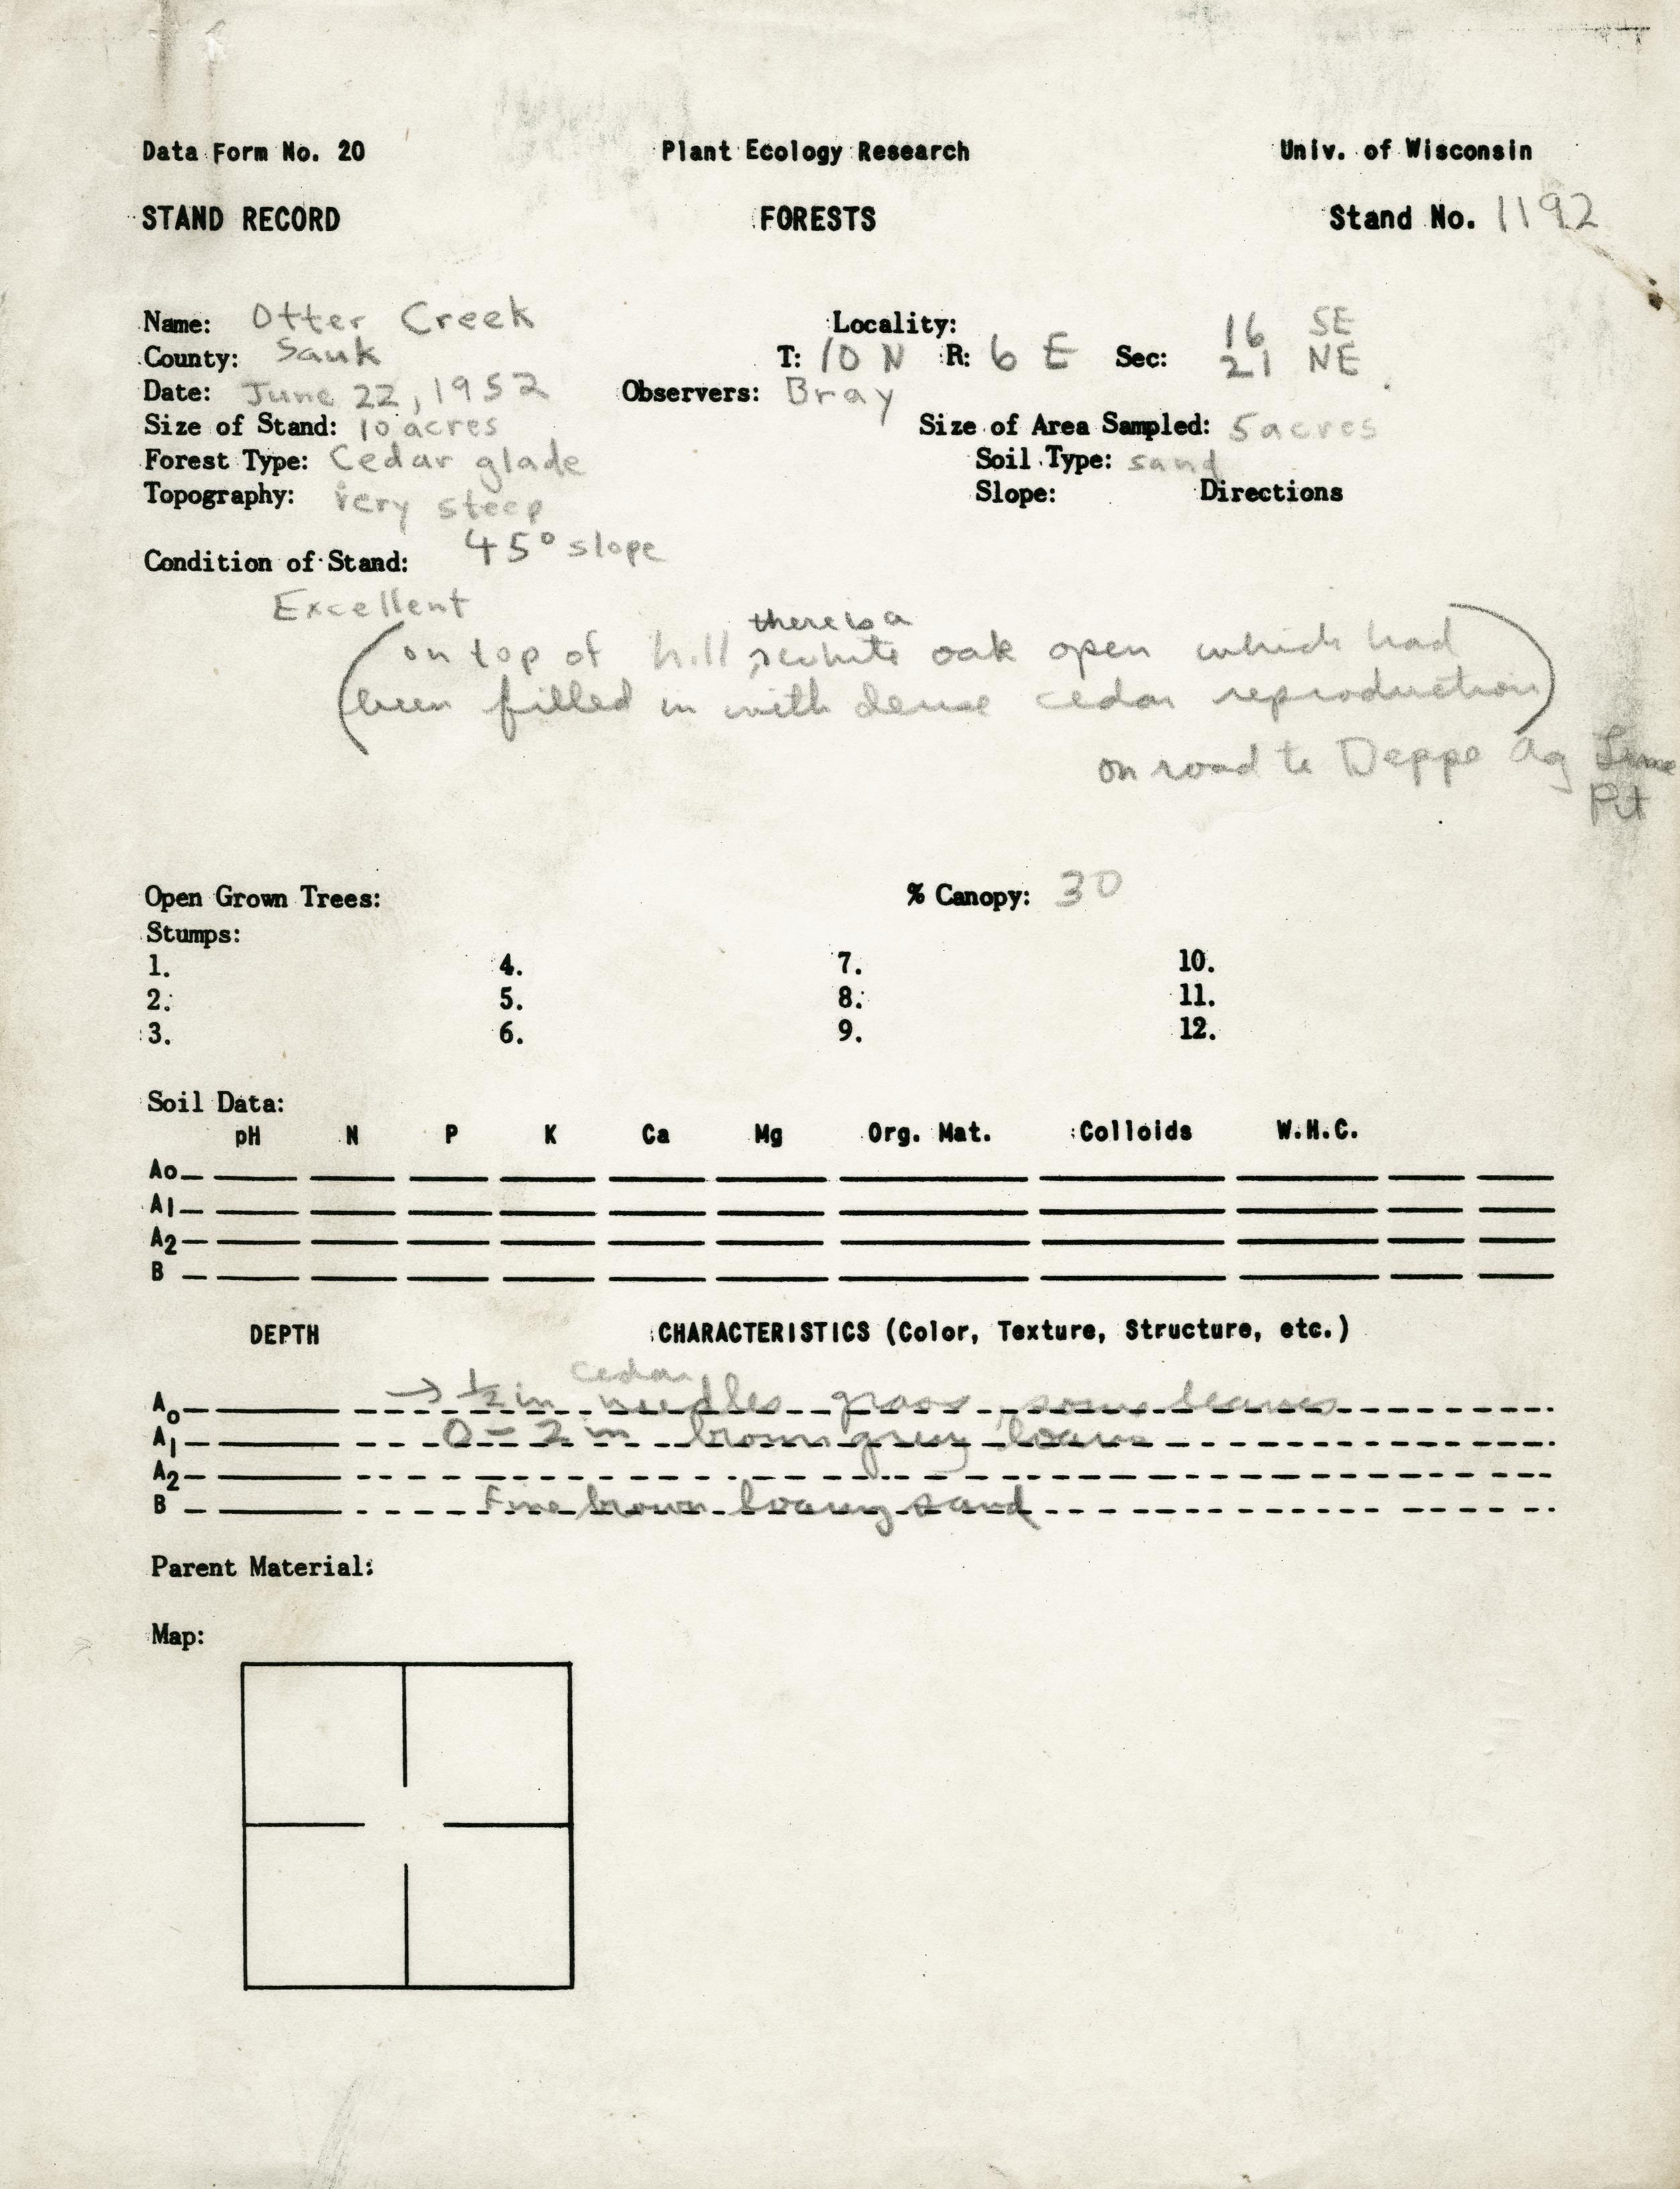 Data Form No. 20 Plant Ecology Research Univ. of Wisconsin
STAND RECORD FORESTS Stand No. 1192
Name: Otter Creek Locality: 16 SE
County: Sauk T: 10 N R: 6 E Sec: 21 NE
Date: June 22, 1952 Observers: Bray
Size of Stand: 10 acres Size of Area Sampled: 5 acres
Forest Type: Cedar glade Soil Type: sand
Topography: very steep Slope: Directions
45° slope
Condition of Stand:
Excellent
there is a
(on top of hill, white oak open which had
been filled in with dense cedar reproduction)
on road to Deppe Ag Lime
Pit
Open Grown Trees: % Canopy: 30
Stumps:
1. 4. 7. 10.
2. 5. 8. 11.
3. 6. 9. 12.
Soil Data:
pH N P K Ca Mg Org. Mat. Colloids W.H.C.
Ao
A1
A2
B
DEPTH CHARACTERISTICS (Color, Texture, Structure, etc.)
cedar
Ao → 1/2 in needles grass some leaves
A1 0-2 in brown grey loam
A2
B Fine brown loamy sand
Parent Material:
Map: